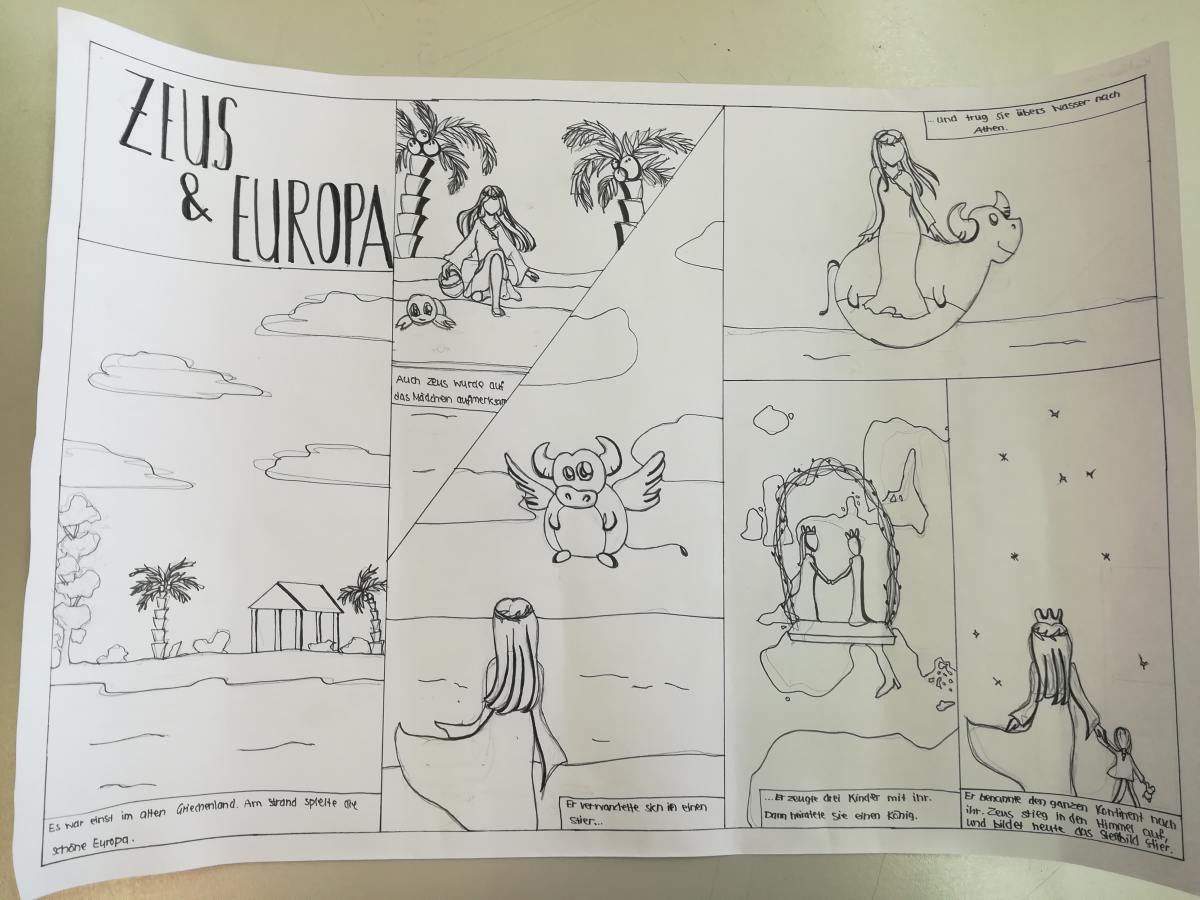 ZEUS
& EUROPA
Es war einst im alten Griechenland. Am Strand spielte die
schöne Europa.
Auch Zeus wurde auf
das Mädchen aufmerksam
Er verwandelte sich in einen
Stier...
...und trug sie übers Wasser nach
Athen.
...Er zeugte drei Kinder mit ihr.
Dann heiratete Sie einen König.
Er benannte den ganzen Kontinent nach
ihr. Zeus stieg in den Himmel auf,
und bildet heute das Sternbild Stier.